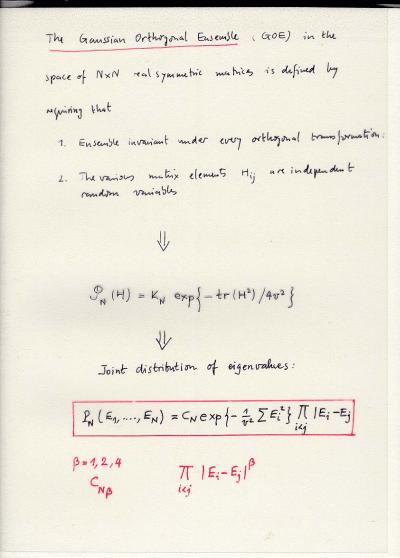 The Gaussian Orthogonal Ensemble (GOE) in the
space of N×N real symmetric matrices is defined by
requiring that
1. Ensemble invariant under every orthogonal transformation.
2. The various matrix elements H_ij are independent
random variables
⇓
P_N (H) = K_N exp{-tr(H²)/4v²}
⇓
Joint distribution of eigenvalues:
P_N (E_1, ...., E_N) = C_N exp{-1/v² ∑E_i²} ∏_{i<j} |E_i-E_j
β=1,2,4
C_{Nβ}
∏_{i<j} |E_i-E_j|^β